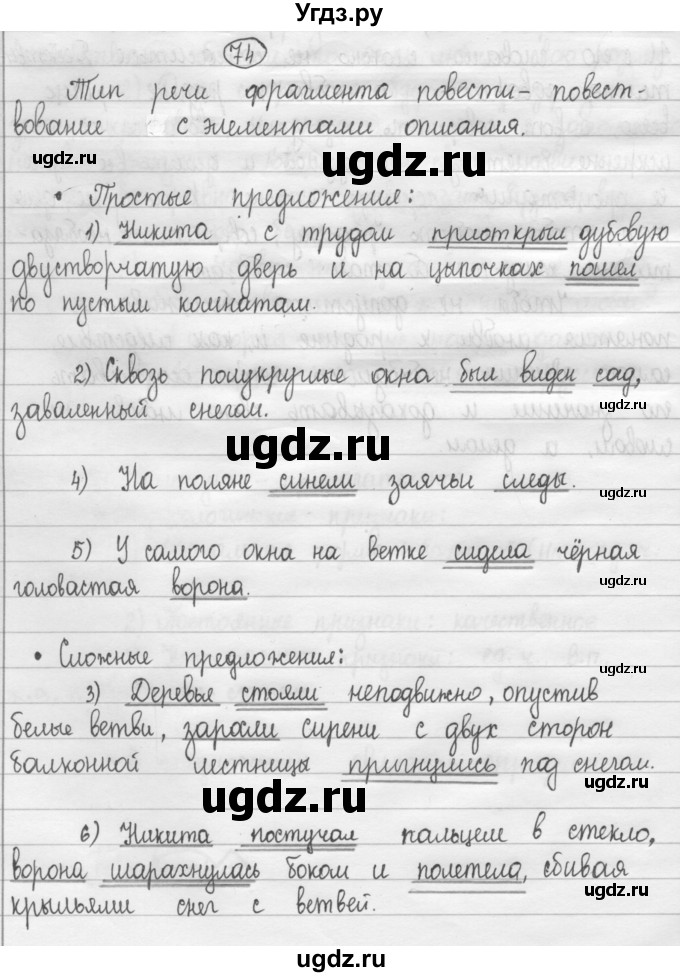 Угдз.ру
74
Тип речи фрагмента повести – повест-
вование с элементами описания.
ugdz.ru ugdz.ru ugdz.ru
• Простые предложения:
1) Никита с трудом приоткрыл дубовую
двустворчатую дверь и на цыпочках пошел
по пустым комнатам.
ugdz.ru
2) Сквозь полукруглые окна был виден сад,
заваленный снегом.
ugdz.ru
ugdz.ru
4) На поляне синели заячьи следы.
ugdz.ru
5) У самого окна на ветке сидела чёрная
головастая ворона.
ugdz.ru
• Сложные предложения:
3) Деревья стояли неподвижно, опустив
белые ветви, заросли сирени с двух сторон
балконной лестницы пригнулись под снегом.
ugdz.ru
ugdz.ru
6) Никита постучал пальцем в стекло,
ворона шарахнулась боком и полетела, сбивая
ugdz.ru
крыльями снег с ветвей.
ugdz.ru ugdz.ru